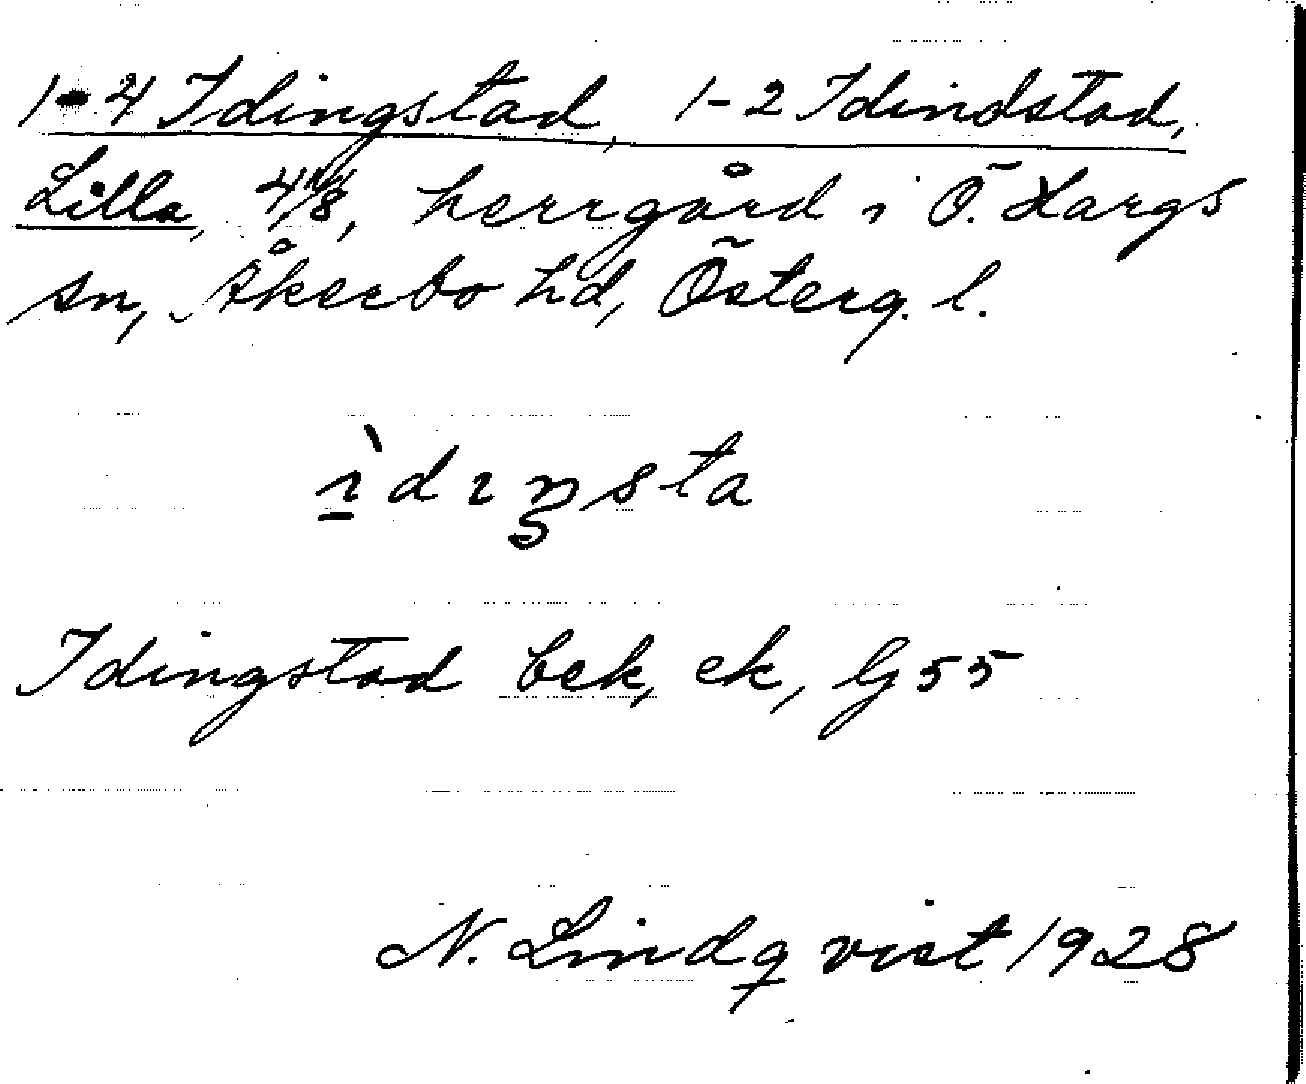 1-4 Idingstad, 1-2 Idindstad,
Lilla, herrgård i Ö. Hargs
sn, Åkerbo hd, Österg. l.
ı̱̀dıŋsta
Idingstad bek, ek, G 55
N. Lindqvist 1928